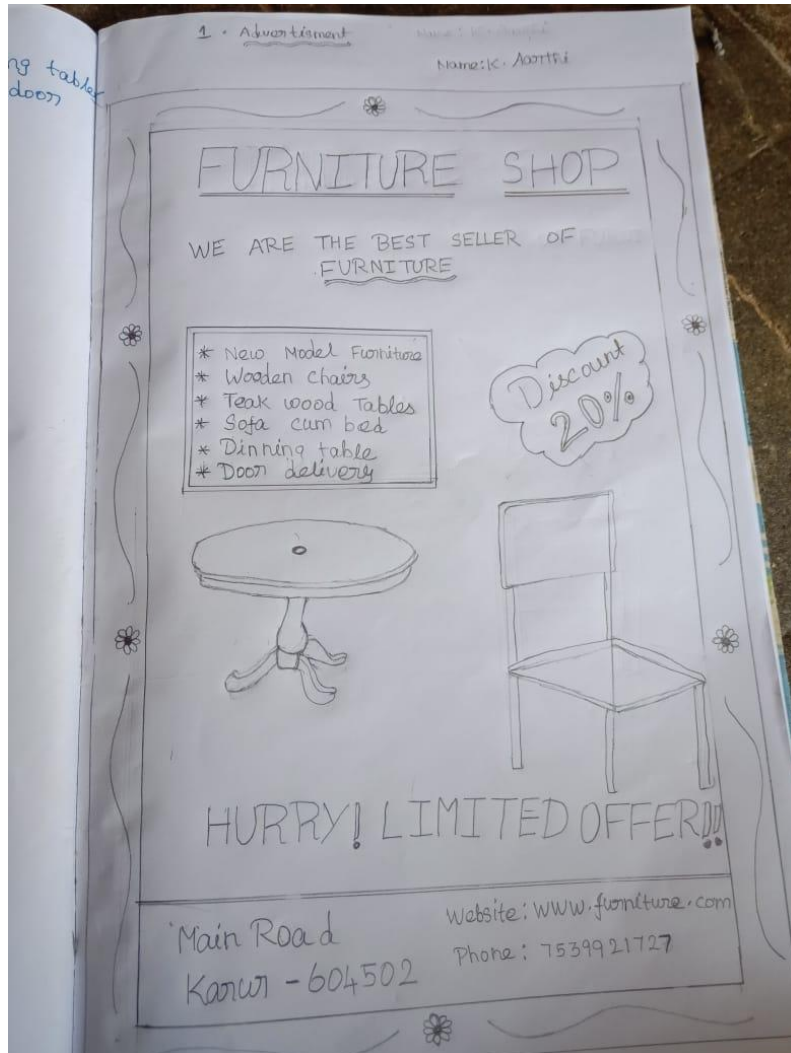 ng tables
door
1. Advertisment
Name: K. Aarthi
FURNITURE SHOP
WE ARE THE BEST SELLER OF
FURNITURE
* New Model Furniture
* Wooden chairs
* Teak wood Tables
* Sofa cum bed
* Dinning table
* Door delivery
Discount
20%
HURRY! LIMITED OFFER!!
Main Road
Karur - 604502
Website: www.furniture.com
Phone: 7539921727